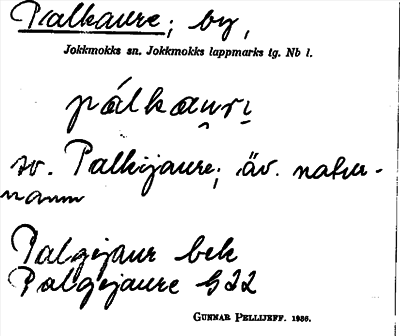 Palkaure; by,
Jokkmokks sn. Jokkmokks lappmarks tg. Nb l.
pálkau̯rı̯
sv. Palkijaure; äv. natur-
namn
Palgijaur bek
Palgijaure G22
GUNNAR PELLIJEFF. 1956.